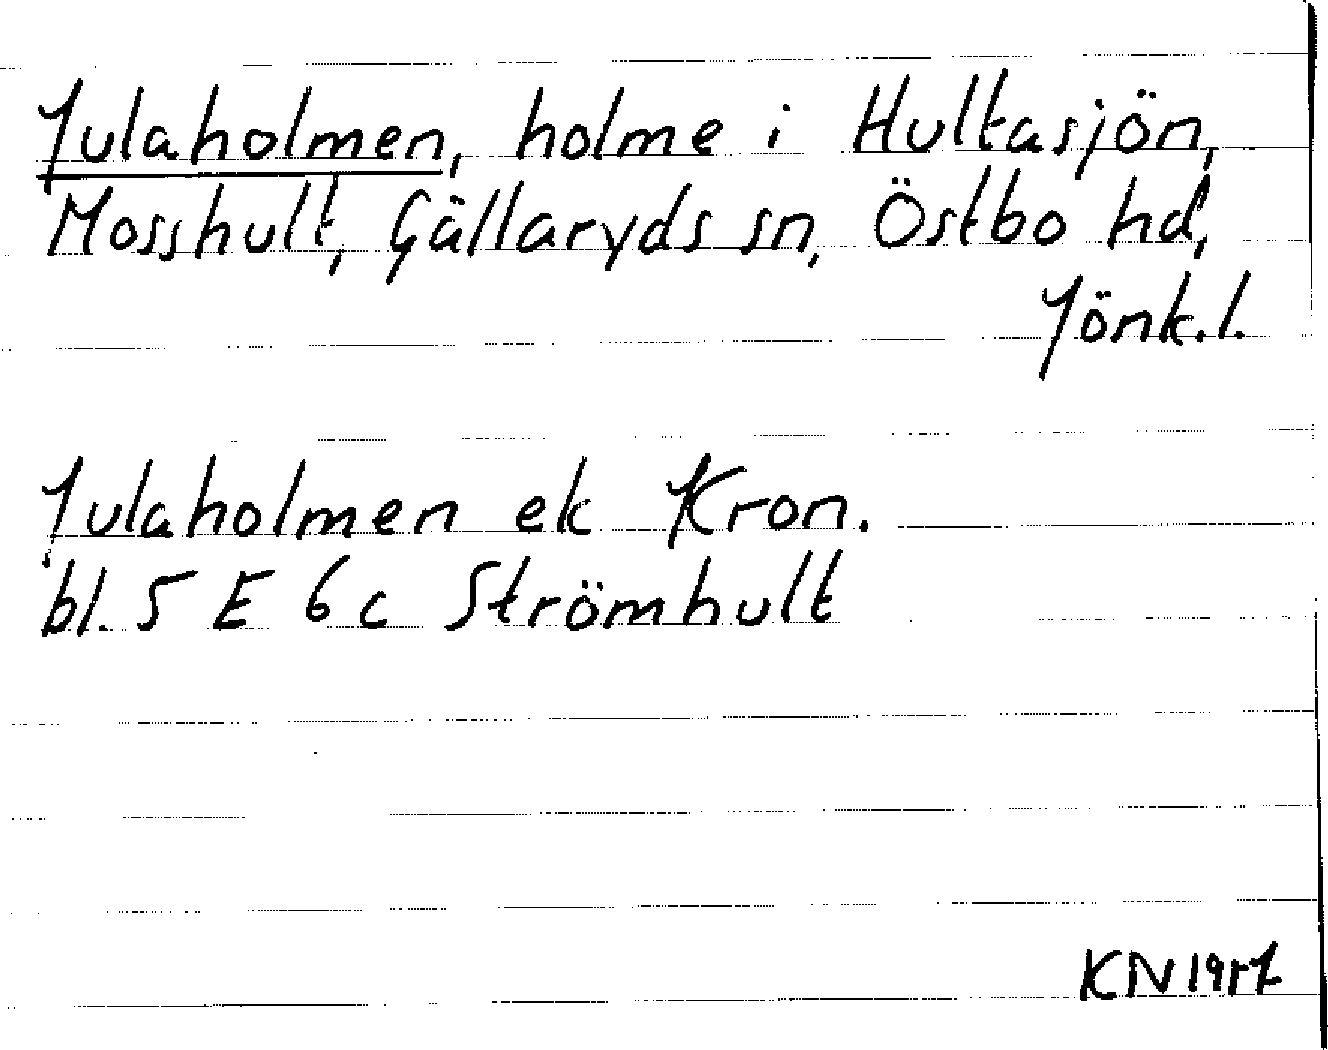 Julaholmen, holme i Hultasjön,
Mosshult, Gällaryds sn, Östbo hd,
Jönk.l.
Julaholmen ek Kron.
bl. 5 E 6 c Strömhult
KN